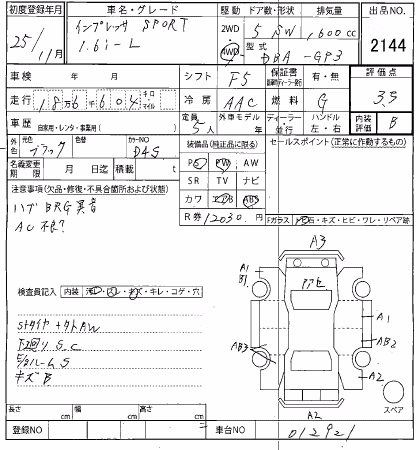 初度登録年月 車名・グレード 駆動 ドア数・形状 排気量 出品NO.
25/11月 インプレッサ SPORT 1.6i-L 2WD 4WD 5 SW 1,600cc 2144
型式 DBA-GP3
車検 年 月 シフト F5 保証書 有・無 評価点
走行 18万6千604 キロ マイル 冷房 AAC 燃料 G 3.5
車歴 自家用・レンタ・事業用( ) 定員 5人 外車モデル 年 ディーラー・並行 ハンドル 左・右 内装評価 B
外色 元色 ブラック 色替 カラーNO D4S 装備品(純正品に限る) セールスポイント(正常に作動するもの)
名義変更期限 月 日 積載量 t PS PW AW
注意事項(欠品・修復・不具合箇所および状態) SR TV ナビ
ハブBRG異音 カワ エアB ABS
AC不良? R券 12030円 Fガラス 飛石・キズ・ヒビ・ワレ・リペア跡
A3
A1
B1
アアセ
検査員記入 内装 汚レ・スレ・キズ・キレ・コゲ・穴
A1
Sトタイヤ+ナトAW
AB3
AB2
下廻りSC
A2
ルームS
キズB
スペア
A2
長さ cm 幅 cm 高さ cm
登録NO 車台NO 012921